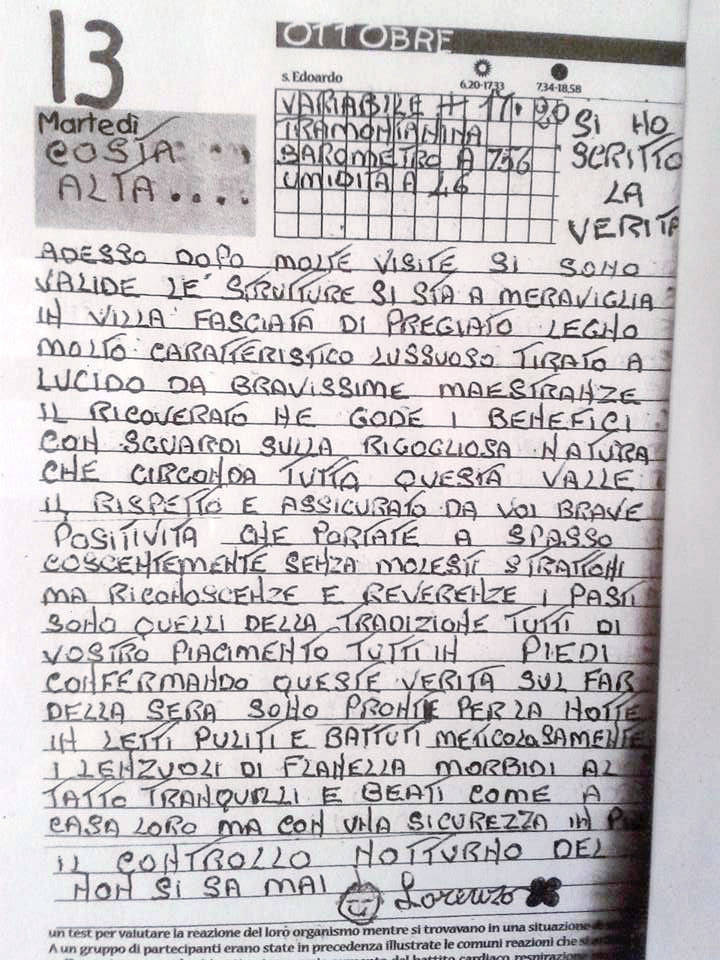 13
OTTOBRE
s. Edoardo
6.20-17.33
7.34-18.58
Martedì
COSTA
ALTA....
VARIABILE + 17.20
TRAMONTANINA
BAROMETRO A 756
UMIDITA A 46
SI HO
SCRITTO
LA
VERITA
ADESSO DOPO MOLTE VISITE SI SONO
VALIDE LE STRUTTURE SI STA A MERAVIGLIA
IN VILLA FASCIATA DI PREGIATO LEGNO
MOLTO CARATTERISTICO LUSSUOSO TIRATO A
LUCIDO DA BRAVISSIME MAESTRANZE
IL RICOVERATO NE GODE I BENEFICI
CON SGUARDI SULLA RIGOGLIOSA NATURA
CHE CIRCONDA TUTTA QUESTA VALLE
IL RISPETTO E ASSICURATO DA VOI BRAVE
POSITIVITA CHE PORTATE A SPASSO
COSCENTEMENTE SENZA MOLESTI STRATTONI
MA RICONOSCENZE E REVERENZE I PASTI
SONO QUELLI DELLA TRADIZIONE TUTTI DI
VOSTRO PIACIMENTO TUTTI IN PIEDI
CONFERMANDO QUESTE VERITA SUL FAR
DELLA SERA SONO PRONTE PER LA NOTTE
IN LETTI PULITI E BATTUTI METICOLOSAMENTE
I LENZUOLI DI FLANELLA MORBIDI AL
TATTO TRANQUILLI E BEATI COME A
CASA LORO MA CON UNA SICUREZZA IN
IL CONTROLLO NOTTURNO DEL
NON SI SA MAI Lorenzo
un test per valutare la reazione del loro organismo mentre si trovavano in una situazione
A un gruppo di partecipanti erano state in precedenza illustrate le comuni reazioni che
battito cardiaco, respirazione